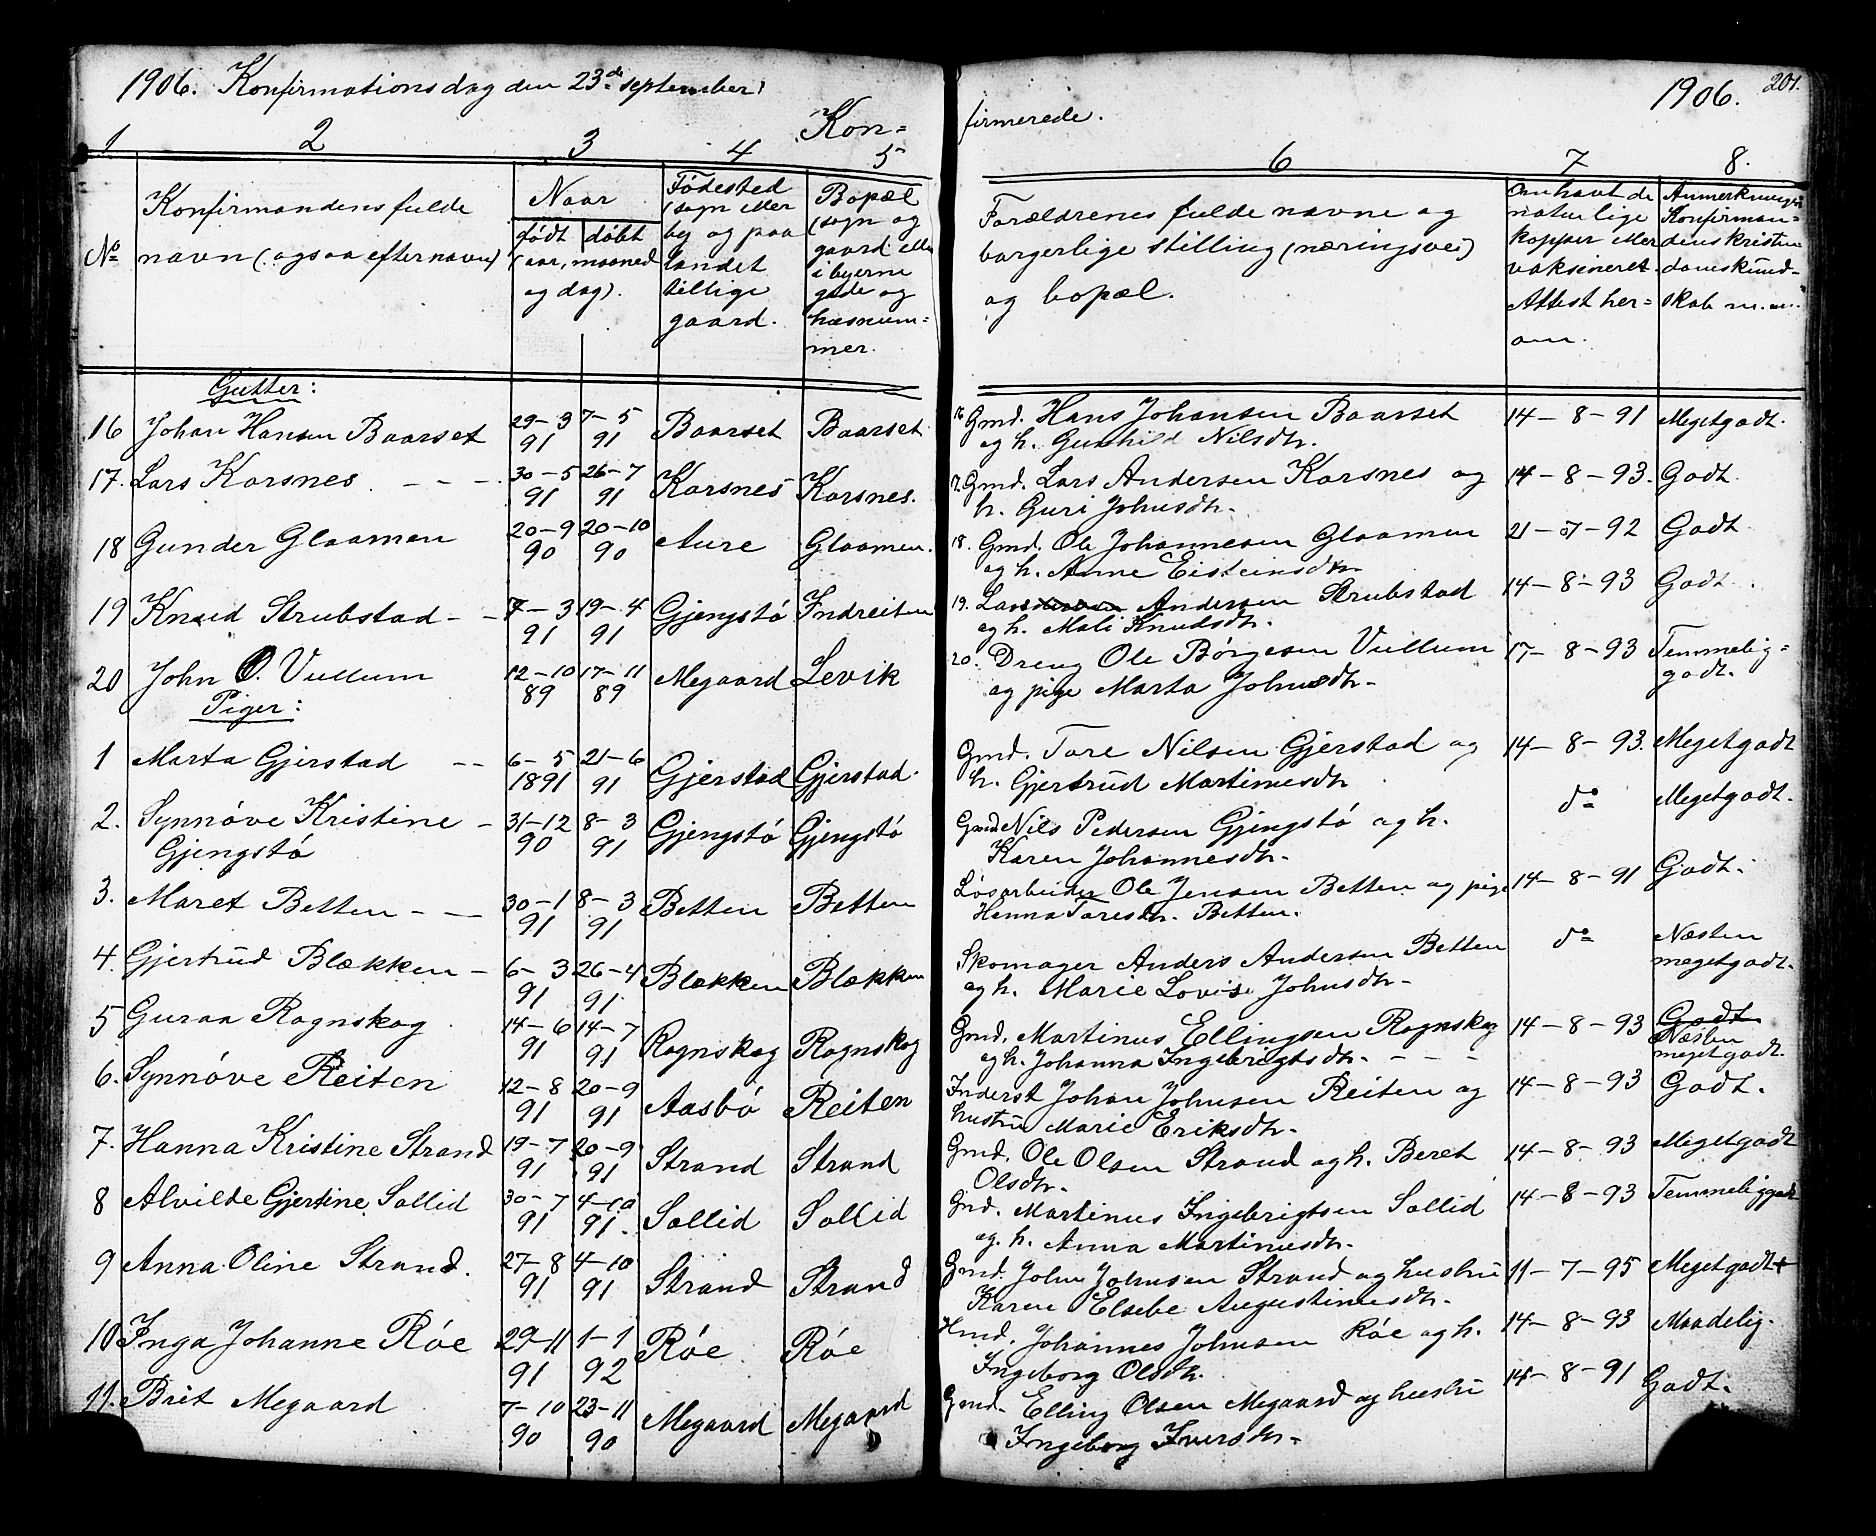 1906. Konfirmationsdag den 23de september.
Kon=
1. 2 3 4 5
No Konfirmandens fulde navn (ogsaa efternavn)
Naar
født døbt
(aar, maaned og dag).
Fødested
(sogn eller
by og paa
landet
tillige
gaard.
Bopæl
(sogn og
gaard eller
i byerne
gade og
husnum=
mer.
Gutter:
16 Johan Hansen Baarset 29–3 91 7–5 91 Baarset Baarset
17. Lars Korsnes 30–5 91 26–7 91 Korsnes Korsnes.
18 Gunder Glaamen 20–9 90 20–10 90 Aure Glaamen.
19 Knud Strubstad 7–3 91 19–4 91 Gjengstø Indreiten
20 John O. Vullum 12–10 89 17–11 89 Megaard Levik
Piger:
1 Marta Gjerstad 6–5 1891 21–6 91 Gjerstad Gjerstad.
2. Synnøve Kristine
Gjengstø 31–12 90 8–3 91 Gjengstø Gjengstø
3. Maret Betten 30–1 91 8–3 91 Betten Betten
4. Gjertrud Blækken 6–3 91 26–4 91 Blækken Blækken
5 Guraa Rognskog 14–6 91 14–7 91 Rognskog Rognskog
6. Synnøve Reiten 12–8 91 20–9 91 Aasbø Reiten
7. Hanna Kristine Strand 19–7 91 20–9 91 Strand Strand
8 Alvilde Gjertine Sollid 30–7 91 4–10 91. Sollid Sollid
9 Anna Oline Strand. 27–8 91 4–10 91 Strand Strand
10 Inga Johanne Røe 29–11 91 1–1 92 Røe Røe
11. Brit Megaard 7–10 90 23–11 90 Megaard Megaard
firmerede.
1906. 201.
6 7 8.
Forældrenes fulde navne og
borgerlige stilling (næringsvei)
og bopæl.
Om havt de
naturlige
kopper eller
vaksineret.
Attest her=
om.
Anmerkninger
Konfirman=
dens kristen
domskund=
skab m.m.
16 Gmd. Hans Johansen Baarset 14–8–91 Megetgodt.
og h. Gunhild Nilsdtr.
17. Gmd. Lars Andersen Korsnes og 14–8–93. Godt.
h. Guri Johnsdtr.
18. Gmd. Ole Johannesen Glaamen 21–7–92 Godt
og h. Anne Eisteinsdtr.
19. Lars Andersen Strubstad 14–8–93 Godt.
og h. Mali Knudsdtr.
20. Dreng Ole Børgesen Vullum 17–8–93 Temmelig=
og pige Marta Johnsdtr. godt.
Gmd. Tore Nilsen Gjerstad og 14–8–93. Megetgodt
h. Gjertrud Martinusdtr
Gmd Nils Pedersen Gjengstø og h. do Megetgodt.
Karen Johannesdtr.
Løsarbeider Ole Jensen Betten og pige 14–8–91 Godt.
Hanna Toresdtr. Betten.
Skomager Anders Andersen Betten do Næsten
og h. Marie Lovise Johnsdtr. megetgodt.
Gmd. Martinus Ellingsen Rognskog 14–8–93 Godt.
og h. Johanna Ingebrigtsdtr. Næsten
megetgodt.
Inderst Johan Johnsen Reiten og 14–8–93 Godt.
hustru Marie Eriksdtr.
Gmd. Ole Olsen Strand og h. Beret 14–8–93 Megetgodt
Olsdtr.
Gmd. Martinus Ingebrigtsen Sollid 14–8–93 Temmeliggodt
og. h. Anna Martinusdtr.
Gmd. John Johnsen Strand og hustru 11–7–95 Megetgodt+
Karen Elsebe Augustinusdtr.
Hmd. Johannes Johnsen Røe og h. 14–8–93 Maadelig.
Ingeborg Olsdtr.
Gmd. Elling Olsen Megaard og hustru 14–8–91 Godt.
Ingeborg Iversdtr.